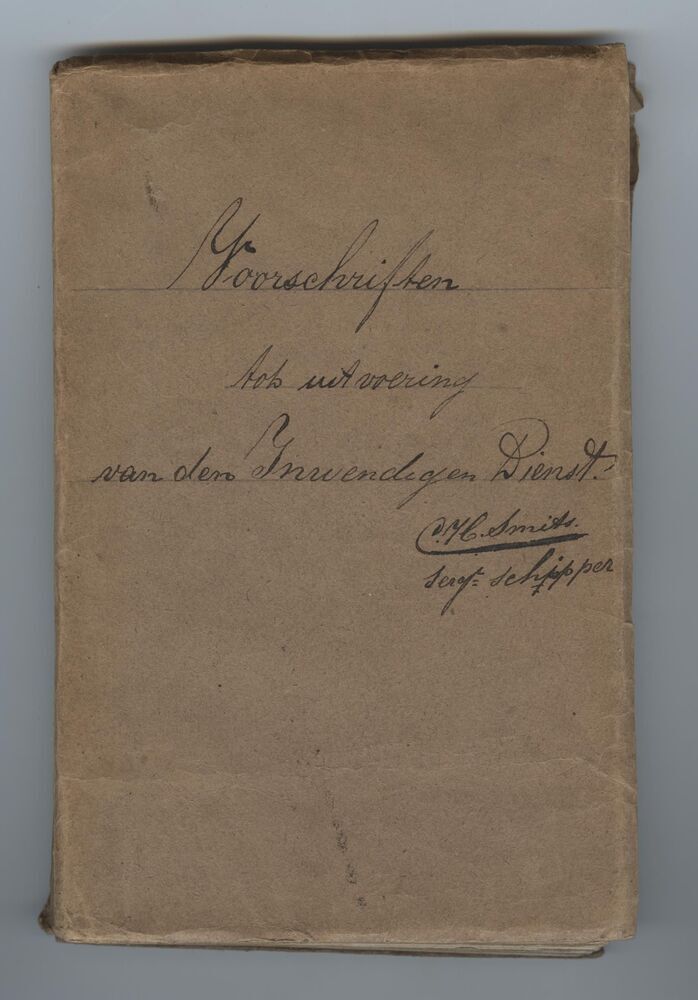 Voorschriften
tot uitvoering
van den Inwendigen Dienst.
C.H. Smits.
Sergt= schipper